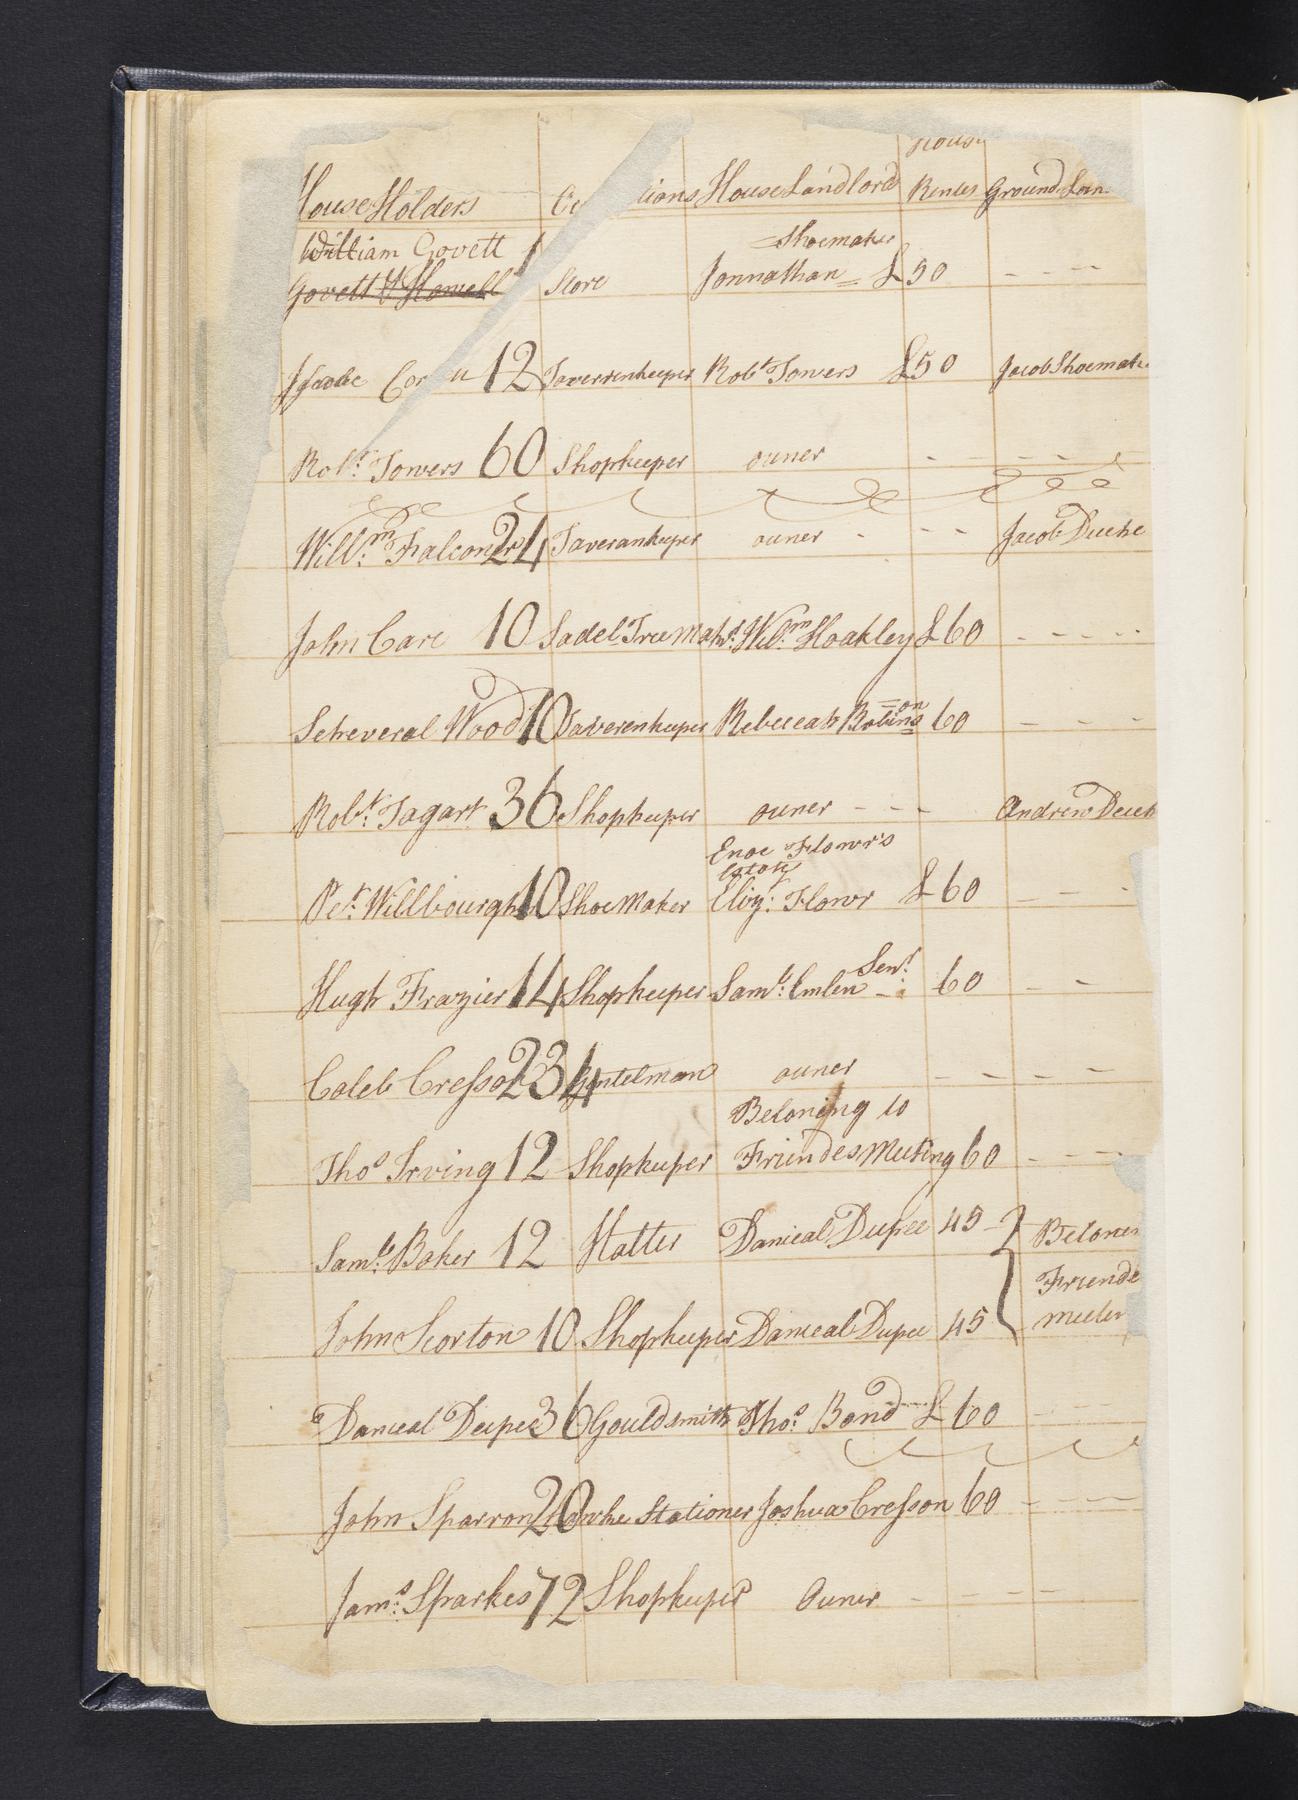 House
House Holders Oc ions House Landlord Rentes Ground Lan
William Govett 1 Shoemaker
Govett & Howell Store Jonnathan = £50 - - - -
Jacobe Co 12 Taverenkeeper Robt Towers £50 Jacob Shoemake
Robt Towers 60 Shopkeeper ouner - - - - -
Willm Falconer 24 Taverankeeper ouner - - - Jacob Duche
John Care 10 Sadel Tree Makr Willm Hoakley £60 - - - - -
Scheveral Wood 10 Taverenkeeper Rebeccah Robins=on 60 - - -
Robt Tagart 36 Shopkeeper ouner - - - Andrew Deech
Enoc Flowr's
Estate
Pet Willbourgh 10 Shoe Maker Eliz: Flowr £60 - - -
Hugh Frazier 14 Shopkeeper Saml Emlen Senr 60 - -
Caleb Cresson 234 Gentelman ouner - - - - -
Beloning to
Thos Irving 12 Shopkeeper Friendes Meeting 60 - - - -
Saml Baker 12 Hatter Danieal Dupee 45 - } Belone
Friende
John Scorton 10 Shopkeeper Danieal Dupee 45 meeten
Danieal Deepee 36 Gouldsmith Thos Bond £60 - - - -
John Sparron 20 Stationer Joshua Cresson 60 - - - -
Jams Sparkes 72 Shopkeeper Ouner - - - -